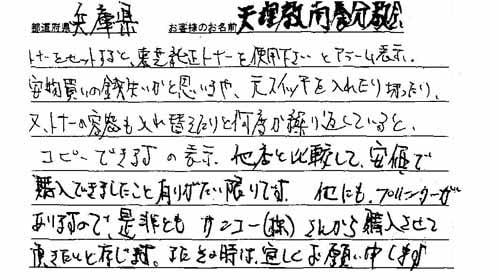 都道府県 兵庫県 お客様のお名前 天理教向養分教会
トナーをセットすると、東芝純正トナーを使用下さいとアラーム表示。
安物買いの銭失いかと思いきや、元スイッチを入れたり切ったり、
又、トナーの容器も入れ替えたりと何度か繰り返していると、
コピーできますの表示。他店と比較して、安価で
購入できましたこと有りがたい限りです。他にも、プリンターが
ありますので、是非とも サンコー(株)さんから購入させて
頂きたいと存じます。またその時は、宜しくお願い申します